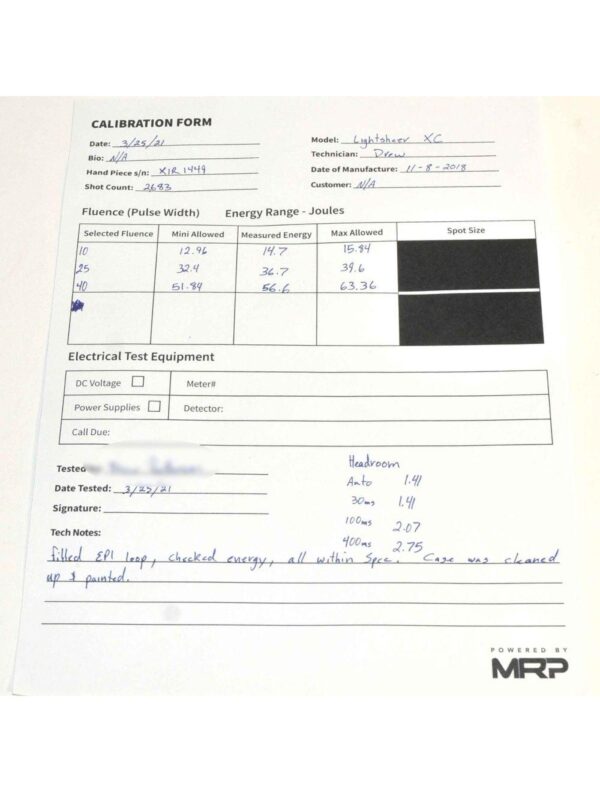 CALIBRATION FORM
Date: 3/25/21 Model: Lightsheer XC
Bio: N/A Technician: Drew
Hand Piece s/n: XIR 1449 Date of Manufacture: 11-8-2018
Shot Count: 2683 Customer: N/A
Fluence (Pulse Width) Energy Range - Joules
Selected Fluence Mini Allowed Measured Energy Max Allowed Spot Size
10 12.96 14.7 15.84
25 32.4 36.7 39.6
40 51.84 56.6 63.36
Electrical Test Equipment
DC Voltage Meter#
Power Supplies Detector:
Call Due:
Headroom
Tested
Auto 1.41
Date Tested: 3/25/21
30ms 1.41
Signature:
100ms 2.07
Tech Notes:
400ms 2.75
filled EPI loop, checked energy, all within Spec. Case was cleaned
up & painted.
POWERED BY
MRP